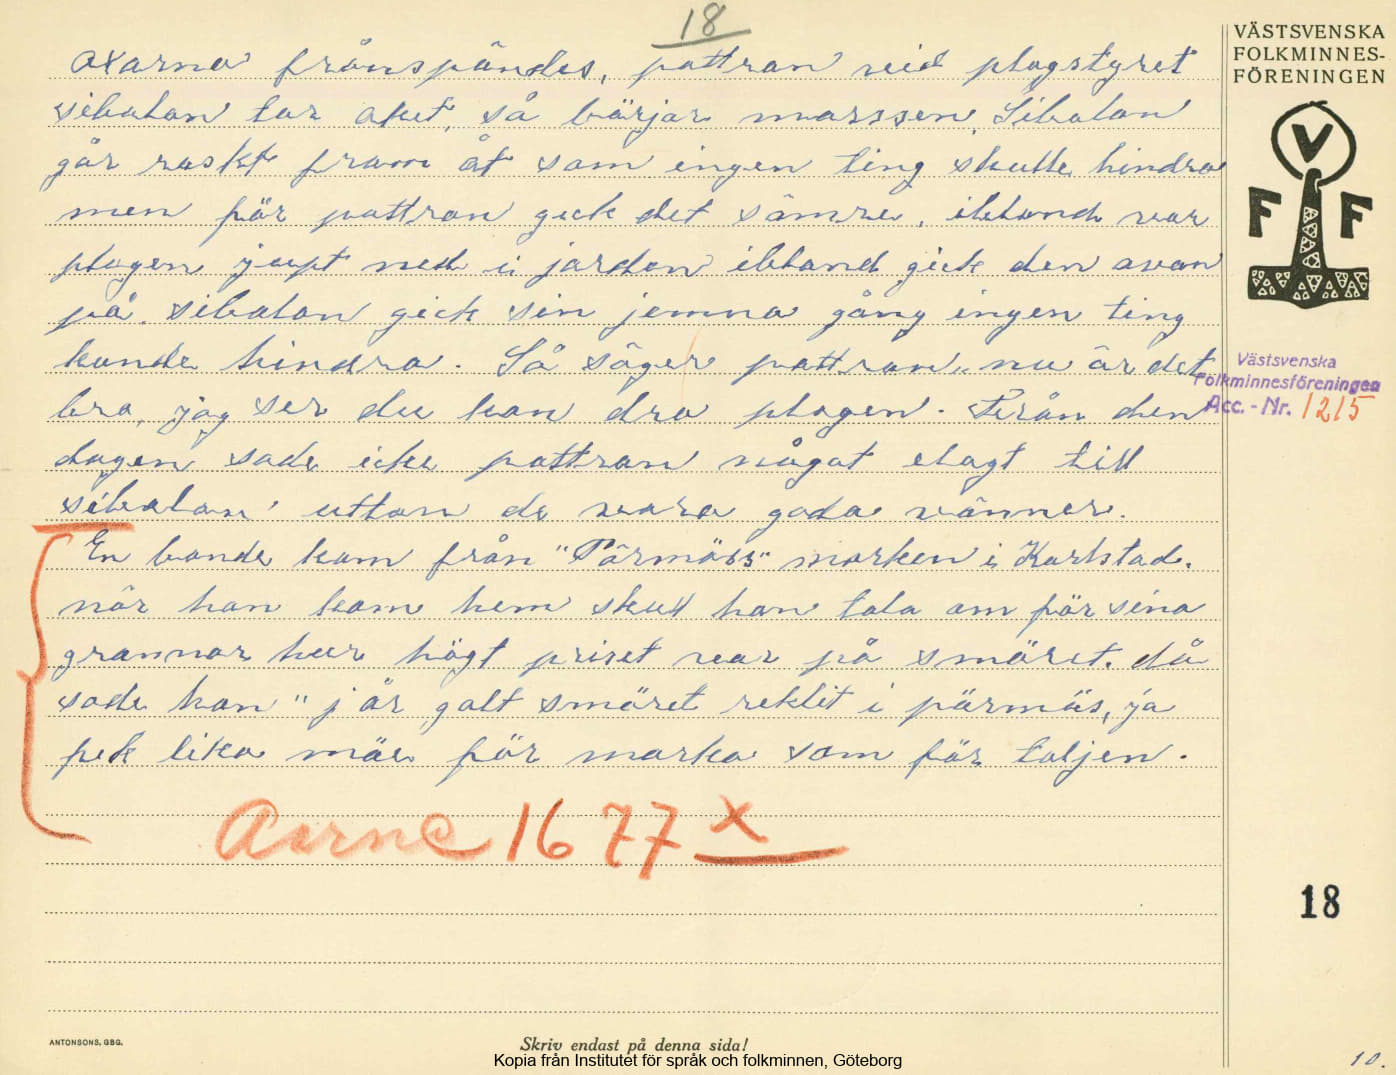 18
oxarna frånspändes, pattran vid plogstyret
sibolan tar oket, så börjar marssen, Sibolan
går raskt fram åt som ingen ting skulle hindra
men för pattron gick det sämre, ibland var
plogen jupt ned i jorden ibland gick den ovan
på. sibolan gick sin jemna gång ingen ting
kunde hindra. Så säger pattron, nu är det
bra, jag ser du kan dra plogen. Från den
dagen sade icke pattran något elagt till
sibolan, uttan de vara goda vänner.
En bonde kom från "Pärmäss" marken i Karlstad.
när han kom hem skull han tala om för sina
grannar hur högt priset var på smöret. då
sade han "j år galt smöret reklit i pärmäs, ja
fek lika mäe för marka som för taljen.
Aarne 1677 x
VÄSTSVENSKA
FOLKMINNES-
FÖRENINGEN
V
F F
Västsvenska
Folkminnesföreningen
Acc. - Nr. 1215
18
ANTONSONS, GBG.
Skriv endast på denna sida!
Kopia från Institutet för språk och folkminnen, Göteborg
10.